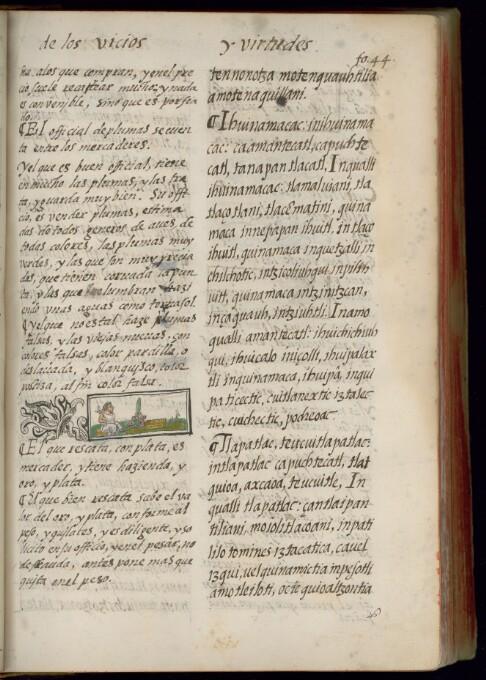 de los vicios y virtudes
fo. 44
ña. alos que compran, yenel pre
cio suele recatear mucho: y nada
es convenible, sino que es porfia
do.
¶ El official de plumas se cuen
ta entre los mercaderes.
Yel que es buen official, tiene
en mucho las plumas, y las tra
ta, y guarda muy bien. Su offi
cio, es vender plumas,
das de todos generos de aues, de
todas colores, las plumas muy
verdes, y las que son muy precia
das, que tienen corcada la pun
ta, y las que relumbran hazi
endo unas aguas como tornasol.
Yel que no es tal haze plumas
falsas, y las viejas con
colores falsos, color pardillo, o
deslauada, y blanquisco, color
postiza, al fin color falso.
¶ El que rescata, con plata, es
mercader, y tiene hazienda, y
oro, y plata.
¶ El que bien rescata sabe el va
lor del oro, y plata, conforme al
peso, y quilates, y es diligente, y so
licito en su officio, yenel pesar, no
defrauda, antes pone mas que
quita enel peso.
tennonotza motenquauhtilia
amotenaquillani.
¶ Ihuinamacac: inihuinama
cac: ca amantecatl, capuchte
catl, tanapantlacatl, Inqualli
ihuinamacac: tlamaluiani, tla
tlaçotlani, tlacematini, quina
maca innepapan ihuitl, in tlaço
ihuitl, quinamaca inquetzalli in
chilchotic, intzicoliuhqui
iuitl, quinamaca intzinitzcan,
inçaquauh, intziuhtli. In amo
qualli amantecatl: ihuichichiuh
qui, ihuiçalo niçolli, ihuipalax
tli inquinamaca, ihuipā, inqui
pa ticectic, cuitlanextic iztalec
tic, cuichectic, pocheoac.
¶ Tlapatlac, teucuitlapatlac:
intlapatlac ca puchtecatl, tlat
quioa, axcaoa, teucuitle, In
qualli tlapatlac: cantlaipan
tiliani, moiolitlacoani, inpati
lilo tomines iztacatica, cauel
izqui, uel quinamictia inpesotli
amo tletloti, oc te quioaltzontia